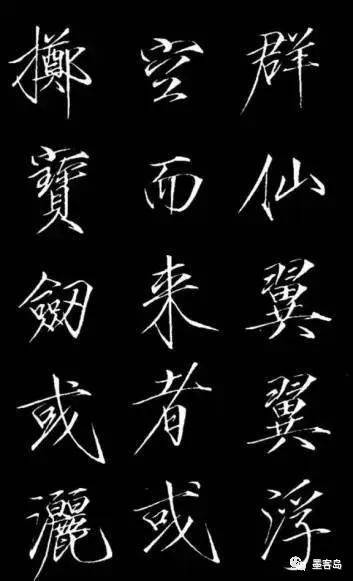 群仙翼翼浮
空而来者或
擲寶劔或灑
墨客岛